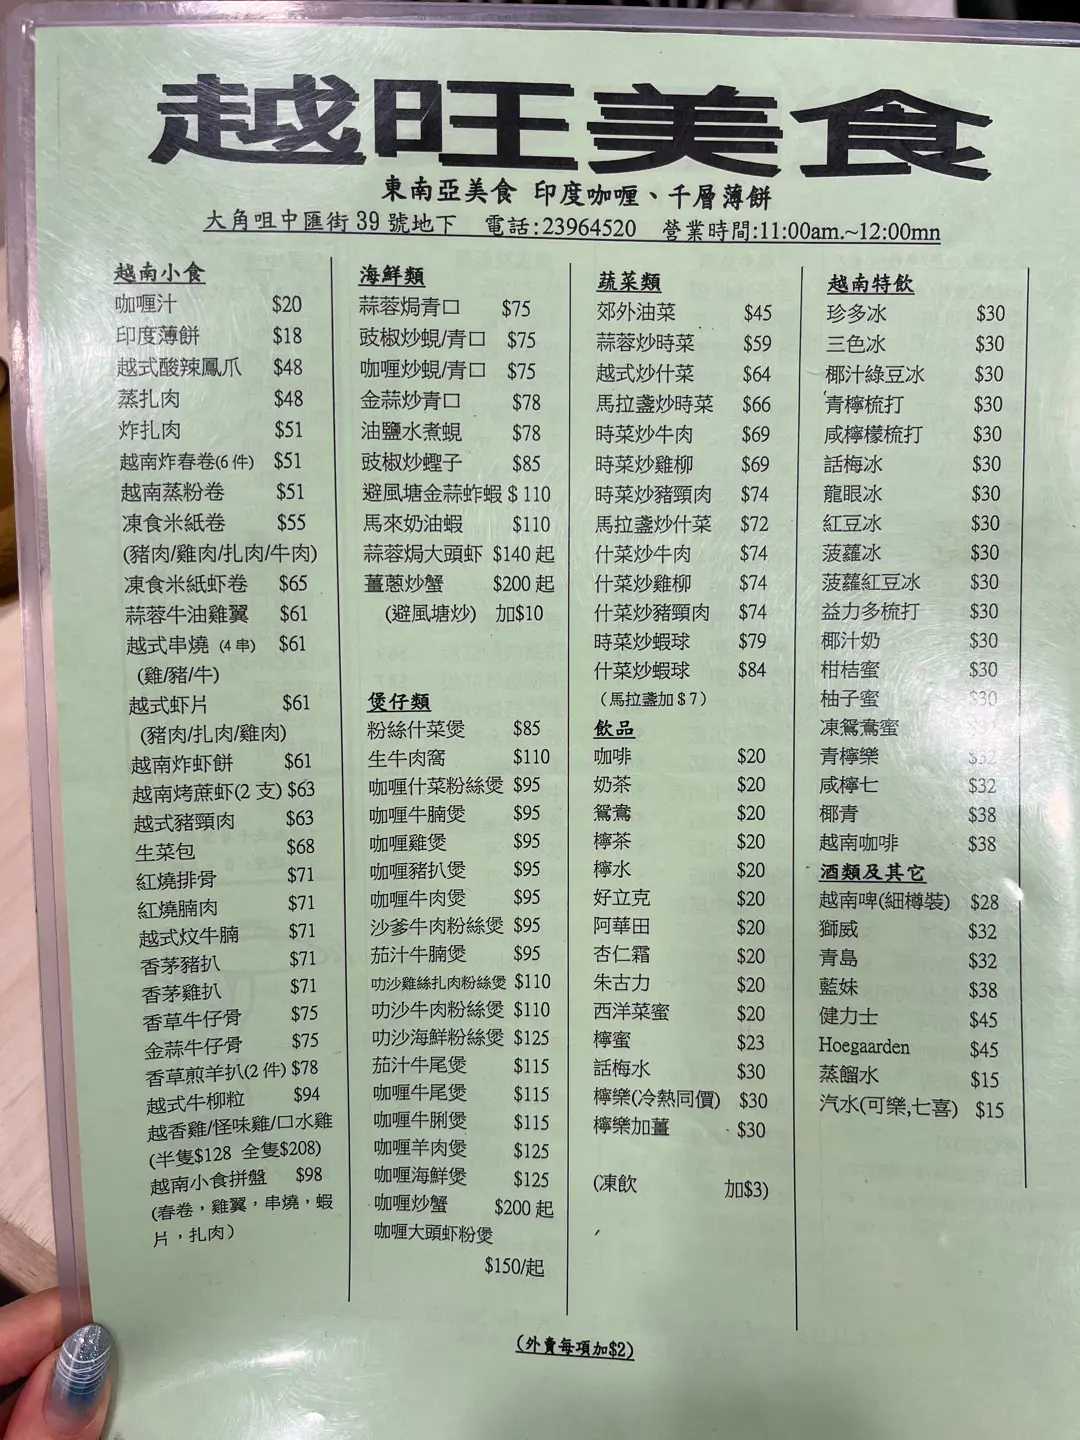 越旺美食
東南亞美食 印度咖喱、千層薄餅
大角咀中匯街 39 號地下 電話:23964520 營業時間:11:00am.~12:00mn
越南小食
咖喱汁 $20
印度薄餅 $18
越式酸辣鳳爪 $48
蒸扎肉 $48
炸扎肉 $51
越南炸春卷(6 件) $51
越南蒸粉卷 $51
凍食米紙卷 $55
(豬肉/雞肉/扎肉/牛肉)
凍食米紙虾卷 $65
蒜蓉牛油雞翼 $61
越式串燒 (4 串) $61
(雞/豬/牛)
越式虾片 $61
(豬肉/扎肉/雞肉)
越南炸虾餅 $61
越南烤蔗虾(2 支) $63
越式豬頸肉 $63
生菜包 $68
紅燒排骨 $71
紅燒腩肉 $71
越式炆牛腩 $71
香茅豬扒 $71
香茅雞扒 $71
香草牛仔骨 $75
金蒜牛仔骨 $75
香草煎羊扒(2 件) $78
越式牛柳粒 $94
越香雞/怪味雞/口水雞
(半隻$128 全隻$208)
越南小食拼盤 $98
(春卷，雞翼，串燒，蝦
片，扎肉)
海鮮類
蒜蓉焗青口 $75
豉椒炒蜆/青口 $75
咖喱炒蜆/青口 $75
金蒜炒青口 $78
油鹽水煮蜆 $78
豉椒炒蟶子 $85
避風塘金蒜蚱蝦 $ 110
馬來奶油蝦 $110
蒜蓉焗大頭虾 $140 起
薑蔥炒蟹 $200 起
(避風塘炒) 加$10
煲仔類
粉絲什菜煲 $85
生牛肉窩 $110
咖喱什菜粉絲煲 $95
咖喱牛腩煲 $95
咖喱雞煲 $95
咖喱豬扒煲 $95
咖喱牛肉煲 $95
沙爹牛肉粉絲煲 $95
茄汁牛腩煲 $95
叻沙雞絲扎肉粉絲煲 $110
叻沙牛肉粉絲煲 $110
叻沙海鮮粉絲煲 $125
茄汁牛尾煲 $115
咖喱牛尾煲 $115
咖喱牛脷煲 $115
咖喱羊肉煲 $125
咖喱海鮮煲 $125
咖喱炒蟹 $200 起
咖喱大頭虾粉煲
$150/起
蔬菜類
郊外油菜 $45
蒜蓉炒時菜 $59
越式炒什菜 $64
馬拉盞炒時菜 $66
時菜炒牛肉 $69
時菜炒雞柳 $69
時菜炒豬頸肉 $74
馬拉盞炒什菜 $72
什菜炒牛肉 $74
什菜炒雞柳 $74
什菜炒豬頸肉 $74
時菜炒蝦球 $79
什菜炒蝦球 $84
(馬拉盞加＄7)
飲品
咖啡 $20
奶茶 $20
鴛鴦 $20
檸茶 $20
檸水 $20
好立克 $20
阿華田 $20
杏仁霜 $20
朱古力 $20
西洋菜蜜 $20
檸蜜 $23
話梅水 $30
檸樂(冷熱同價) $30
檸樂加薑 $30
(凍飲 加$3)
越南特飲
珍多冰 $30
三色冰 $30
椰汁綠豆冰 $30
青檸梳打 $30
咸檸檬梳打 $30
話梅冰 $30
龍眼冰 $30
紅豆冰 $30
菠蘿冰 $30
菠蘿紅豆冰 $30
益力多梳打 $30
椰汁奶 $30
柑桔蜜 $30
柚子蜜 $30
凍鴛鴦蜜
青檸樂 $32
咸檸七 $32
椰青 $38
越南咖啡 $38
酒類及其它
越南啤(細樽裝) $28
獅威 $32
青島 $32
藍妹 $38
健力士 $45
Hoegaarden $45
蒸餾水 $15
汽水(可樂,七喜) $15
(外賣每項加$2)